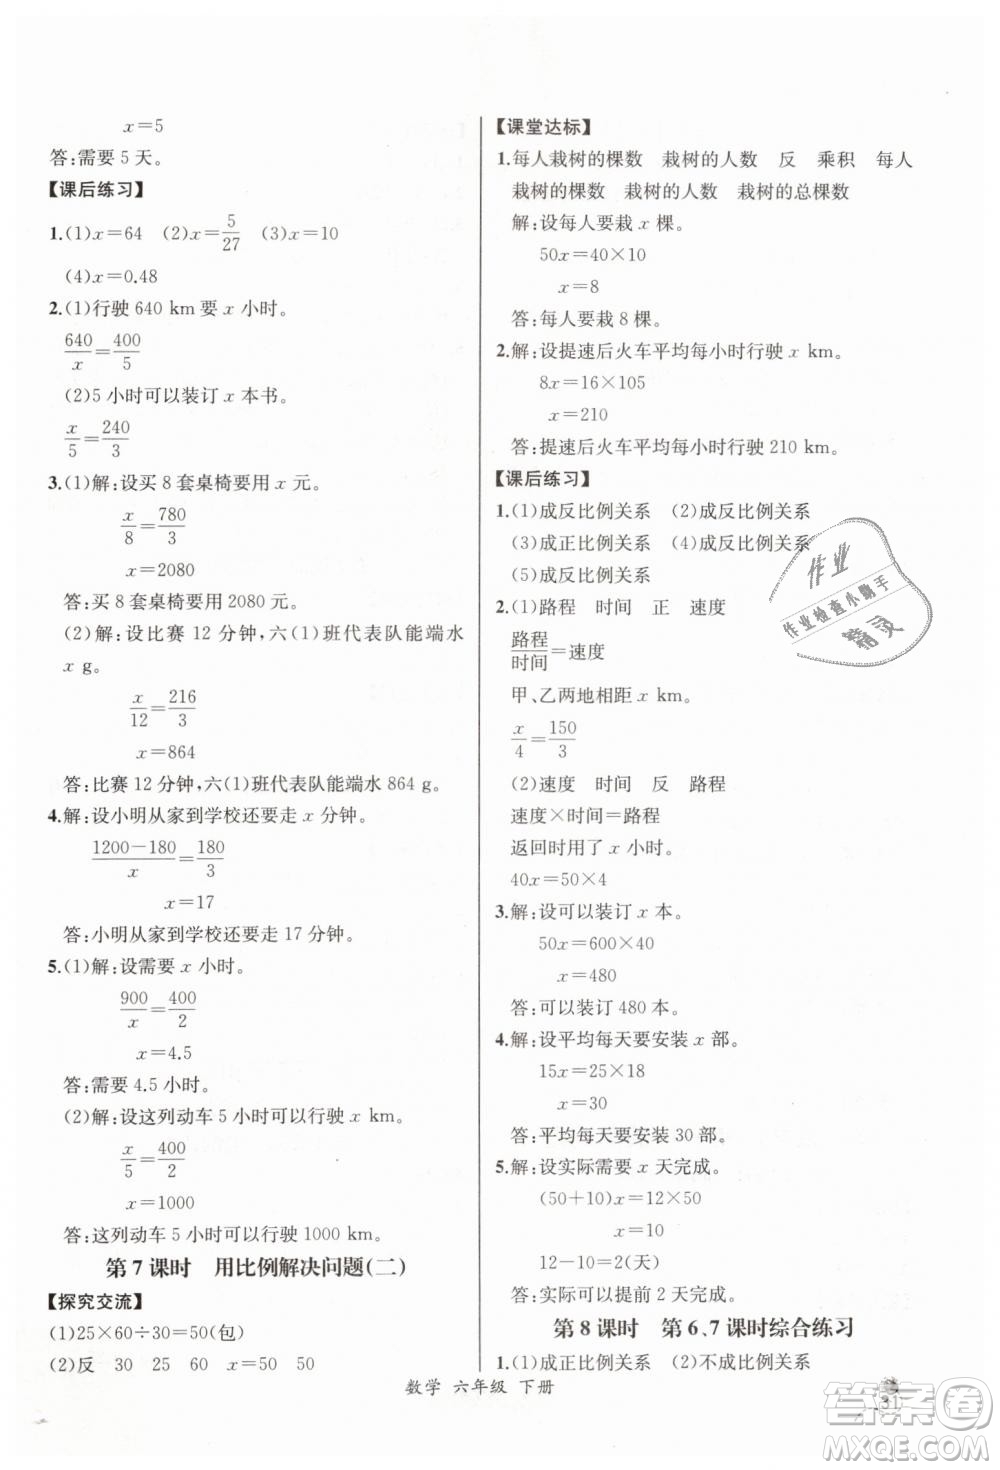 x=5
答:需要 5 天。
【课后练习】
1.(1)x=64 (2)x=5/27 (3)x=10
(4)x=0.48
2.(1)行驶 640 km要 x 小时。
640/x=400/5
(2)5 小时可以装订 x 本书。
x/5=240/3
3.(1)解:设买 8 套桌椅要用 x 元。
x/8=780/3
x=2080
答:买 8 套桌椅要用 2080 元。
(2)解:设比赛 12 分钟,六(1)班代表队能端水
x g。
x/12=216/3
x=864
答:比赛 12 分钟,六(1)班代表队能端水 864 g。
4.解:设小明从家到学校还要走 x 分钟。
1200-180/x=180/3
x=17
答:小明从家到学校还要走 17 分钟。
5.(1)解:设需要 x 小时。
900/x=400/2
x=4.5
答:需要 4.5 小时。
(2)解:设这列动车 5 小时可以行驶 x km。
x/5=400/2
x=1000
答:这列动车 5 小时可以行驶 1000 km。
第 7 课时 用比例解决问题(二)
【探究交流】
(1)25×60÷30=50(包)
(2)反 30 25 60 x=50 50
【课堂达标】
1.每人栽树的棵数 栽树的人数 反 乘积 每人
栽树的棵数 栽树的人数 栽树的总棵数
解:设每人要栽 x 棵。
50x=40×10
x=8
答:每人要栽 8 棵。
2.解:设提速后火车平均每小时行驶 x km。
8x=16×105
x=210
答:提速后火车平均每小时行驶 210 km。
【课后练习】
1.(1)成反比例关系 (2)成反比例关系
(3)成正比例关系 (4)成反比例关系
(5)成反比例关系
2.(1)路程 时间 正 速度
路程/时间=速度
甲、乙两地相距 x km。
x/4=150/3
(2)速度 时间 反 路程
速度×时间=路程
返回时用了 x 小时。
40x=50×4
3.解:设可以装订 x 本。
50x=600×40
x=480
答:可以装订 480 本。
4.解:设平均每天要安装 x 部。
15x=25×18
x=30
答:平均每天要安装 30 部。
5.解:设实际需要 x 天完成。
(50+10)x=12×50
x=10
12-10=2(天)
答:实际可以提前 2 天完成。
第 8 课时 第 6、7 课时综合练习
1.(1)成正比例关系 (2)不成比例关系
作业
作业检查小助手
精灵
数学 六年级 下册
31
答案圈
MXQE.COM